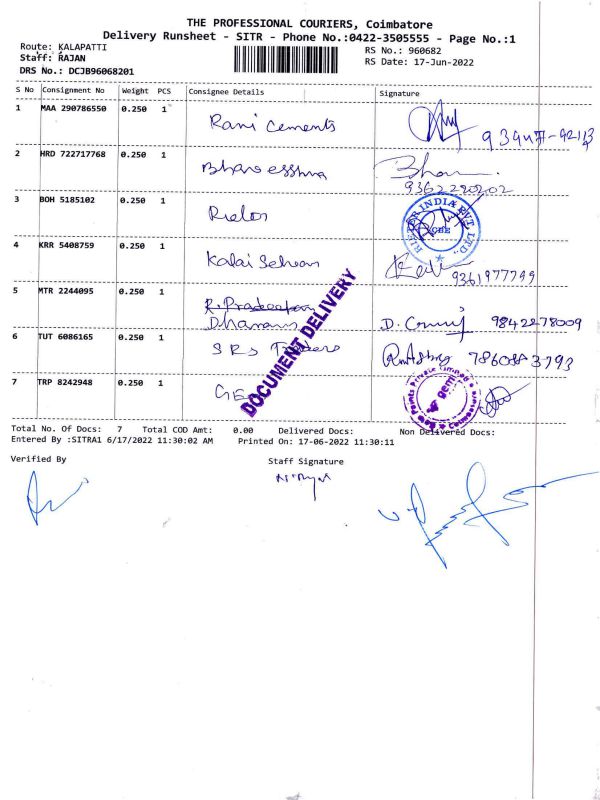 THE PROFESSIONAL COURIERS, Coimbatore
Delivery Runsheet - SITR - Phone No.:0422-3505555 - Page No.:1
Route: KALAPATTI RS No.: 960682
Staff: RAJAN RS Date: 17-Jun-2022
DRS No.: DCJB96068201
S No Consignment No Weight PCS Consignee Details Signature
1 MAA 290786550 0.250 1 Rani Cements
2 HRD 722717768 0.250 1
9362220202
3 BOH 5185102 0.250 1 INDIA PVT LTD.,
4 KRR 5408759 0.250 1 Kalai Selvan 9361977799
5 MTR 2244095 0.250 1
D. 9842278009
6 TUT 6086165 0.250 1 SRS
7 TRP 8242948 0.250 1 gem
DOCUMENT DELIVERY
Total No. Of Docs: 7 Total COD Amt: 0.00 Delivered Docs: Non Delivered Docs:
Entered By :SITRA1 6/17/2022 11:30:02 AM Printed On: 17-06-2022 11:30:11
Verified By Staff Signature